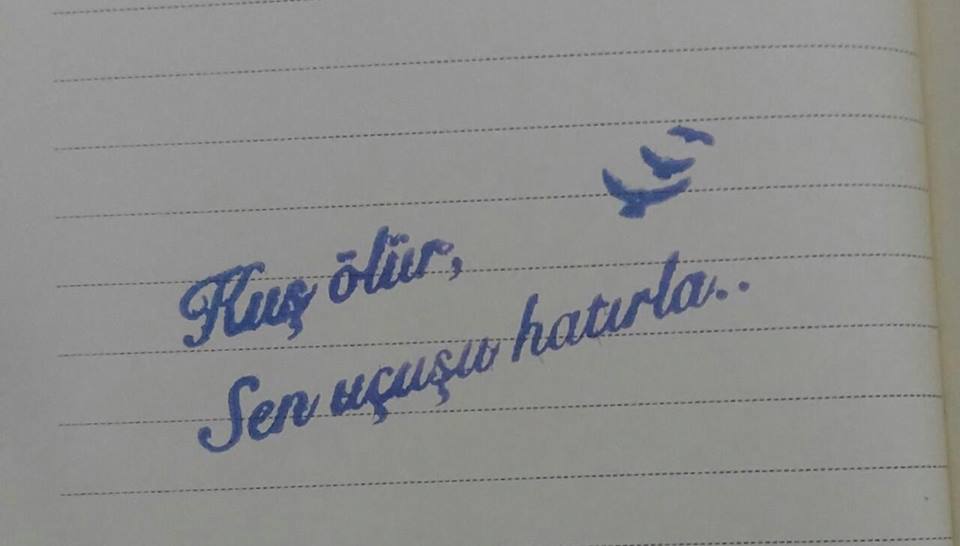 Kuş ölür,
Sen uçuşu hatırla..